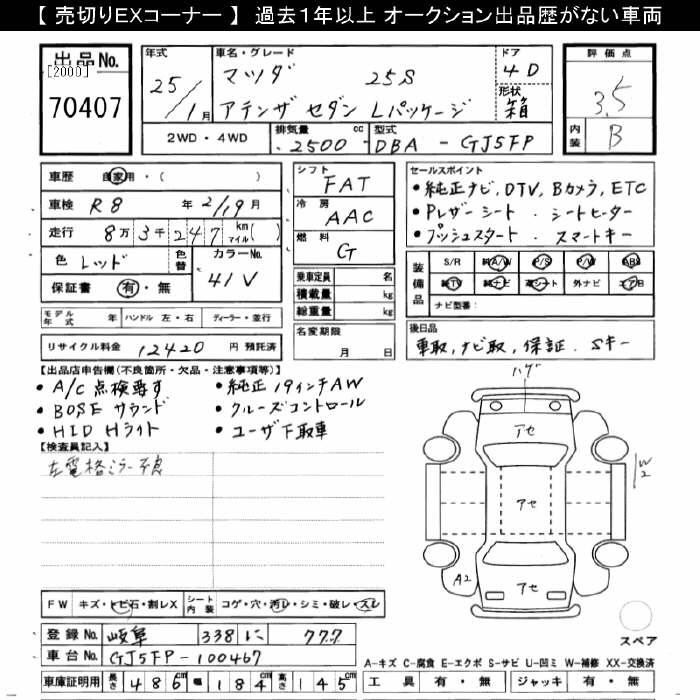 【 売切りEXコーナー 】 過去１年以上 オークション出品歴がない車両
出品No.
[2000]
70407
年式
25/1月
車名・グレード
マツダ 25S
アテンザ セダン Lパッケージ
ドア
4D
形状
箱
評価点
3.5
内装
B
2WD・4WD
排気量
2500cc
型式
DBA - GJ5FP
車歴 自家用・( )
車検 R8年2/19月
走行 8万3千247 km マイル( )
色 レッド 色替
カラーNo.
41V
保証書 有・無
シフト
FAT
冷房
AAC
燃料
G
乗車定員 名
積載量 kg
総重量 kg
名変期限
月 日
セールスポイント
・純正ナビ, DTV, Bカメラ, ETC
・Pレザーシート. シートヒーター
・プッシュスタート スマートキー
装備品
S/R 純A/W P/S P/W ABS
純TV 純ナビ 革シート 外ナビ エアB
ナビ型番:
モデル年式 年 ハンドル 左・右 ディーラー・並行
リサイクル料金 12420 円 預託済
後日品
車取, ナビ取, 保証. Sキー
【出品店申告欄(不良箇所・欠品・注意事項等)】
・A/C 点検要す
・純正19インチAW
・BOSE サウンド
・クルーズコントロール
・HID Hライト
・ユーザ下取車
【検査員記入】
左電格ミラー不良
ハゲ
アセ
アセ
アセ
W2
A2
スペア
FW キズ・トビ石・割レX
シート内装 コゲ・穴・汚レ・シミ・破レ・スレ
登録No. 岐阜 338 に 777
車台No. GJ5FP-100467
車庫証明用 長さ 486cm 幅 184cm 高さ 145cm
A-キズ C-腐食 E-エクボ S-サビ U-凹ミ W-補修 XX-交換済
工具 有・無 ジャッキ 有・無